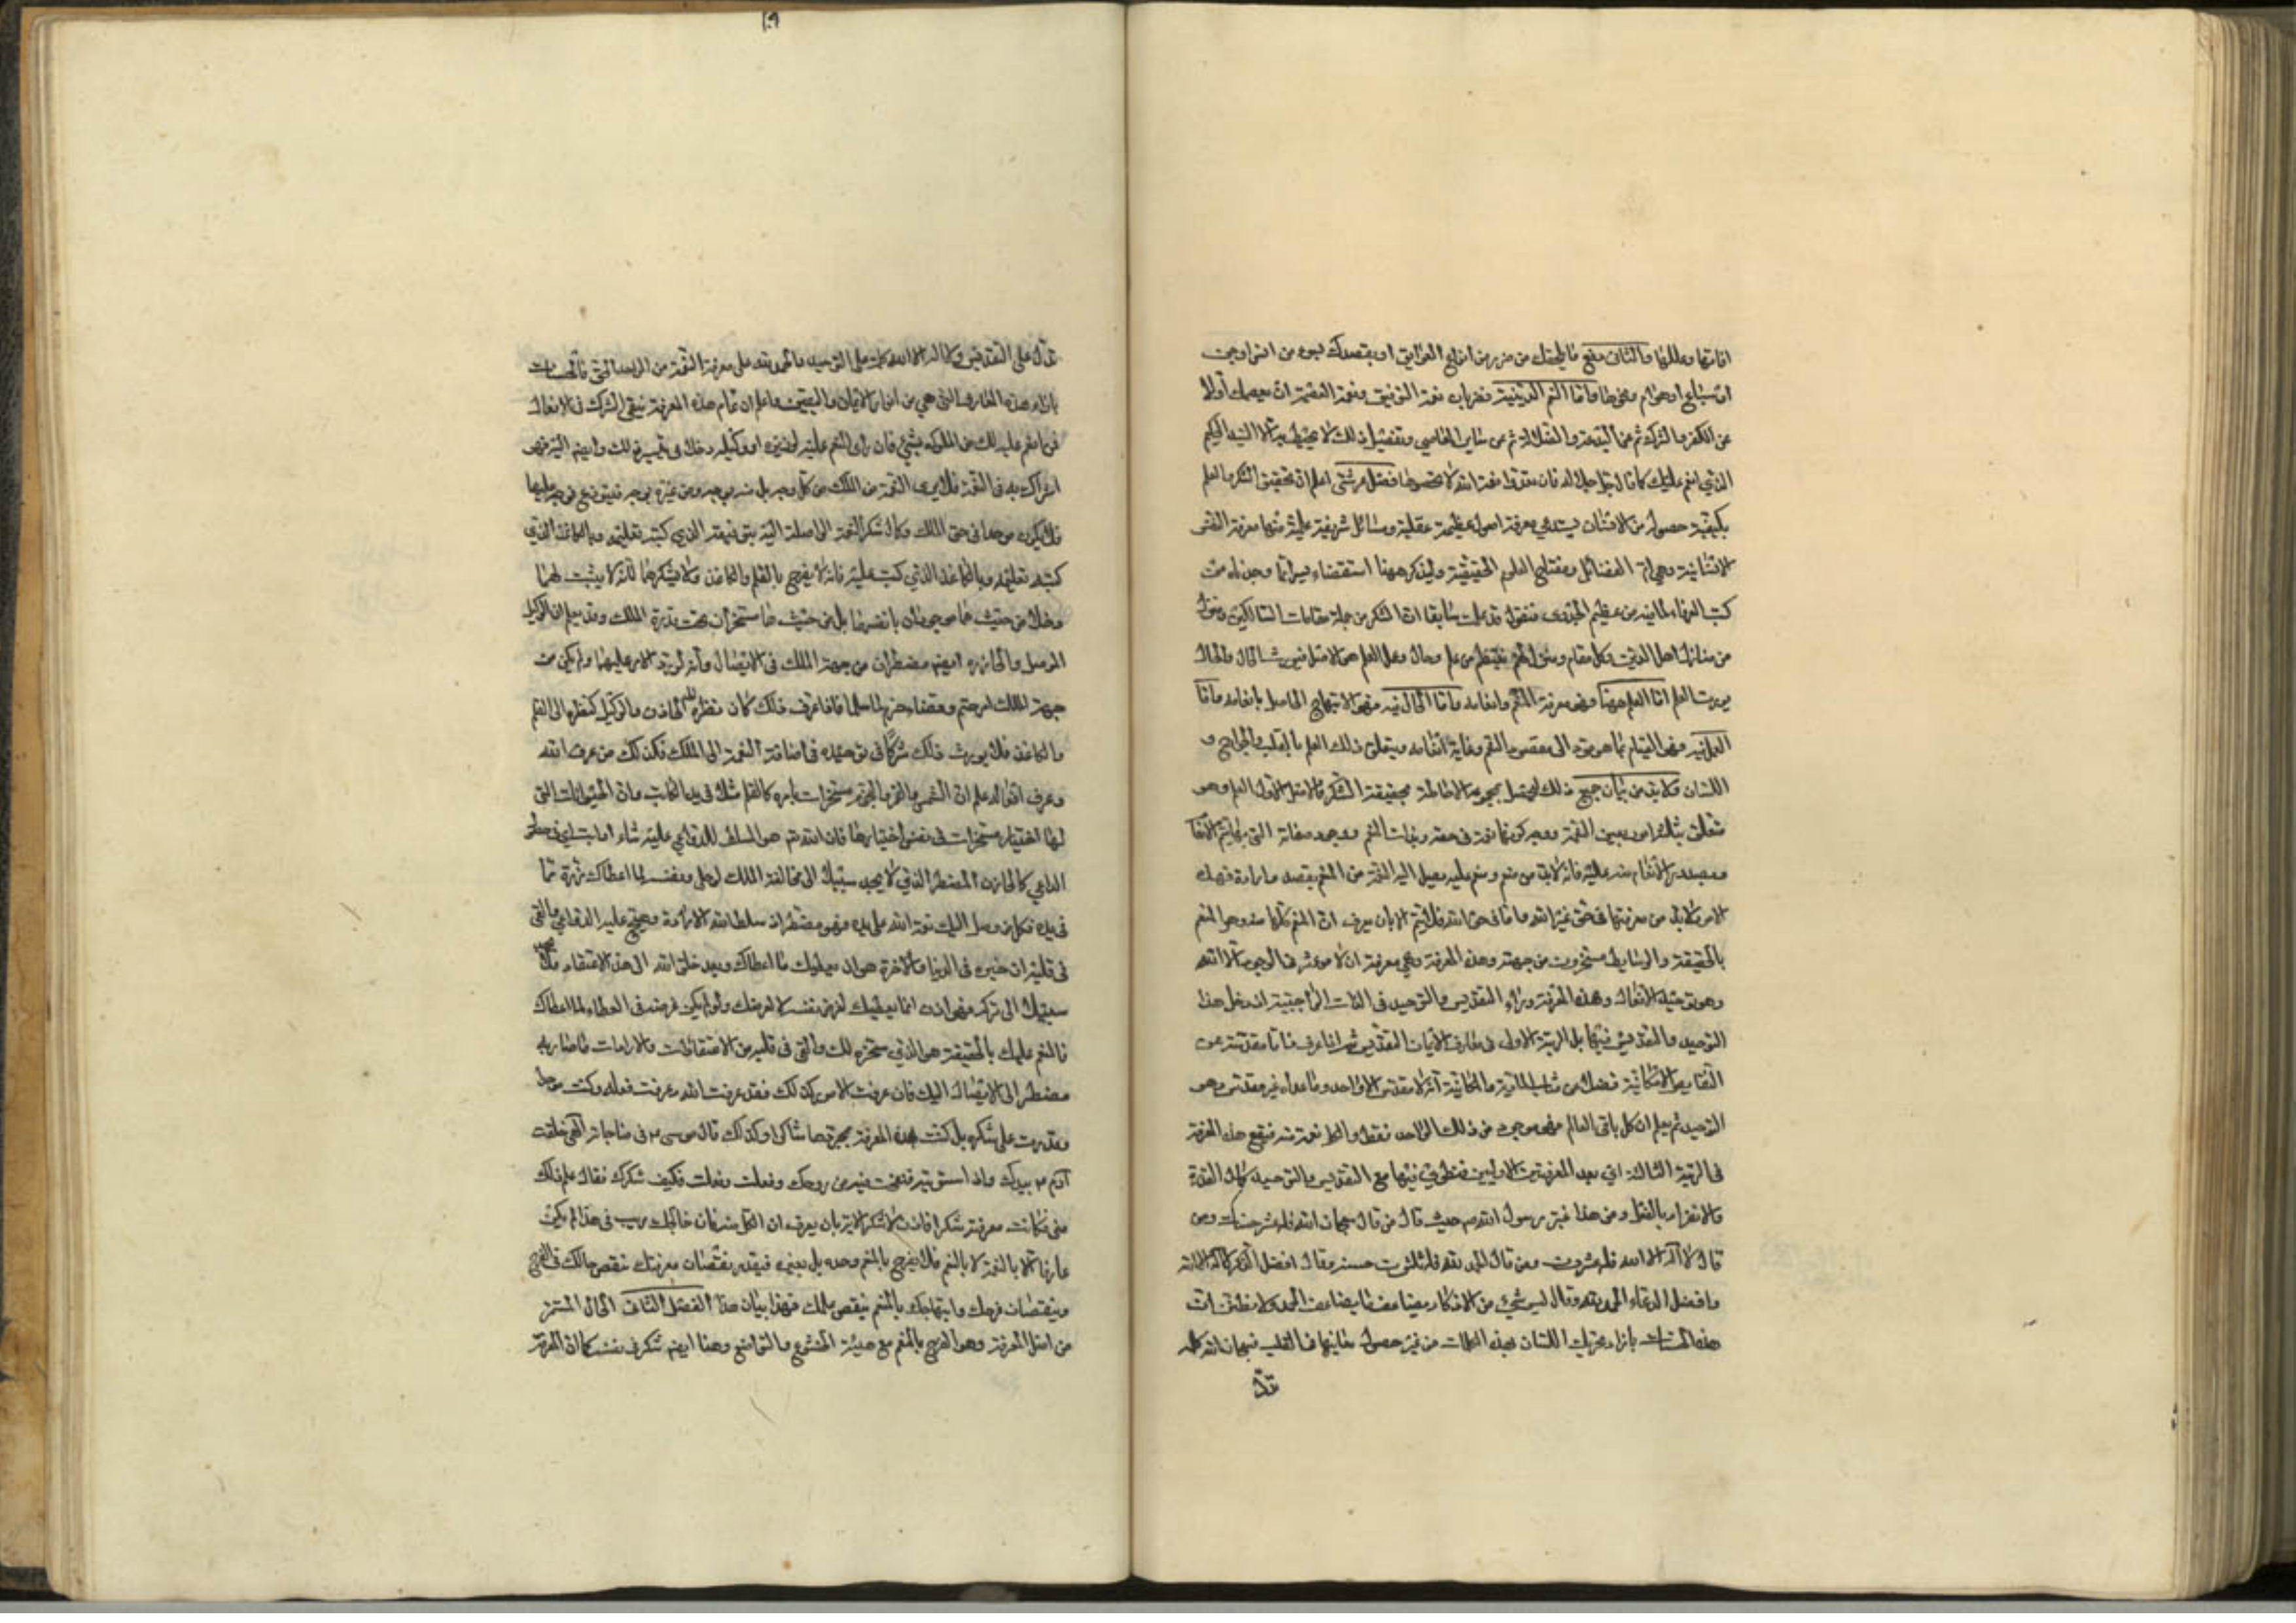 افاتها وعللها والثاني دفع ما يلحقك من ضرر من انواع العوايق او يقصدك بسوء من انس او جن
او سباع او هوام وغيرها واما النعم الدينية فضربان نعمة التوفيق ونعمة العصمة ان يعصمك اولا
عن الكفر والشرك ثم عن البدعة والضلالة ثم عن ساير المعاصي وتفصيل ذلك لا يحيط به الا السيد الحكيم
الذي انعم عليك كما قال جل جلاله فان تعدوا نعمة الله لا تحصوها فصل اعلم ان تحقيق الشكر والعلم
بكيفية حصوله من الانسان يستدعي معرفة اصول عظيمة عقلية ومسائل شريفة علمية منها معرفة النفس
الانسانية وهي ام الفضائل ومفتاح العلوم الحقيقية ولنذكر ههنا
كتب العرفاء لما فيه من عظيم الجدوى فنقول قد علمت سابقا ان الشكر من جملة مقامات السالكين ومنزل
من منازل اهل الدين وكل مقام ومنزل لهم ينتظم من علم وحال وعمل العلم هو الاصل فيورث الحال والحال
يورث العمل اما العلم ههنا فهو معرفة المنعم وانعامه واما الحال فيه فهو الابتهاج الحاصل بانعامه واما
العمل فيه فهو القيام بما هو مؤد الى مقصود المنعم وغاية انعامه ويتعلق ذلك العمل بالقلب والجوارح و
اللسان ولا بد من بيان جميع ذلك ليحصل بمجموعه الاحاطة بحقيقة الشكر فالاصل الاول العلم وهو
متعلق بثلثة امور بعين النعمة ووجه كونها نعمة في حقه وبذات المنعم ووجود صفاته التي بها يتم الانعا
ويصدر الانعام منه عليه فانه لا بد من منعم ومنعم عليه يصل اليه النعمة من المنعم بقصد وارادة فهذه
الامور لا بد من معرفتها في حق غير الله واما في حق الله فلا يتم الا بان يعرف ان النعم كلها منه وهو المنعم
بالحقيقة والوسايط مسخرون من جهته وهذه المعرفة وهي معرفة ان لا مؤثر في الوجود الا الله
وهو توحيد الافعال وهذه المعرفة وراء التقديس والتوحيد في الذات الواجبية اذ دخل هذا
التوحيد والتقديس فيها بل الرتبة الاولى في معارف الايمان التقديس ثم اذا عرف ذاتا مقدسة عن
النقايص الامكانية فضلا عن شوايب المادية والمكانية انه لا مقدس الا واحد وما عداه غير مقدس وهو
التوحيد ثم يعلم ان كل باقي العالم فهو موجود من ذلك الواحد فقط والكل نعمة منه فيقع هذه المعرفة
في الرتبة الثالثة اي بعد المعرفتين الاوليين فينطوي فيها مع التقديس والتوحيد كمال القدرة
والانفراد بالفعل ومن هذا خبر رسول الله ص حيث قال من قال سبحان الله فله عشر حسنات ومن
قال لا اله الا الله فله عشرون ومن قال الحمد لله فله ثلثون حسنة وقال افضل الذكر لا اله الا الله
وافضل الدعاء الحمد لله وقال ليس شيء من الاذكار يضاعف ما يضاعف الحمد ولا تظنن ان
هذه الحسنات بازاء تحريك اللسان بهذه الكلمات من غير حصول معانيها في القلب فسبحان الله كلمة
تدل
تدل على التقديس ولا اله الا الله كلمة تدل على التوحيد والحمد لله على معرفة النعمة من الواحد الحق فالحسنات
بازاء هذه المعارف التي هي من ابواب الايمان واليقين واعلم ان تمام هذه المعرفة ينفي الشرك في الافعال
فمن انعم عليه ملك من الملوك بشيء فان رأى المنعم عليه لوزيره او وكيله دخلا في تيسير ذلك وايصاله اليه فهو
اشراك به في النعمة فلا يرى النعمة من الملك من كل وجه بل منه بوجه ومن غيره بوجه فيتوزع فرحه عليها
فلا يكون موحدا في حق الملك وكمال شكر النعمة الواصلة اليه بتوقيعه الذي كتبه بقلمه وبالكاغذ الذي
كتبه بقلمه وبالكاغذ الذي كتب عليه فانه لا يفرح بالقلم والكاغذ ولا يشكرهما لانه لا يثبت لهما
دخلا من حيث هما موجودان بانفسهما بل من حيث هما مسخران تحت قدرة الملك وقد يعلم ان الوكيل
الموصل والخازن ايضا مضطران من جهة الملك في الايصال وانه لو رد الامر عليهما ولم يكن من
جهة الملك امر حتم وقضاء جزم لما سلما فاذا عرف ذلك كان نظره الى الخازن والوكيل كنظره الى القلم
والكاغذ فلا يورث ذلك شركا في توحيده في اضافة النعمة الى الملك فكذلك من عرف الله
وعرف افعاله علم ان الشمس والقمر والنجوم مسخرات بامره كالقلم مثلا في يد الكاتب وان الحيوانات التي
لها اختيار مسخرات في نفس اختيارها فان الله تع هو المسلط للدواعي عليه شاء ام ابت
الداعي كالخازن المضطر الذي لا يجد سبيلا الى مخالفة الملك لو خلى ونفسه لما اعطاك ذرة مما
في يده فكل من وصل اليك نعمة الله على يده فهو مضطر اذ سلط الله الارادة وهيج عليه الدواعي والقى
في قلبه ان خيره في الدنيا والاخرة هو ان يعطيك ما اعطاك وبعد خلق الله الى هذا الاعتقاد فلا يجد
سبيلا الى تركه فهو اذن انما يعطيك لغرض نفسه لا لغرضك ولو لم يكن غرضه في العطاء لما اعطاك
فالمنعم عليك بالحقيقة هو الذي سخره لك والقى في قلبه من الاعتقادات والارادات ما صار به
مضطرا الى الايصال اليك فان عرفت الامور كذلك فقد عرفت الله وعرفت فعله وكنت موحدا
وقدرت على شكره بل كنت بهذه المعرفة بمجردها شاكرا ولذلك قال موسى ع في مناجاته الهي خلقت
آدم ع بيدك واذ استويته نفخت فيه من روحك وفعلت وفعلت فكيف شكرك فقال علم ذلك
مني فكانت معرفته شكرا فاذن لا شكر الا بان يعرف ان الكل منه فان خالجك ريب في هذا لم يكن
عارفا لا بالنعمة لا بالمنعم فلا يفرح بالمنعم وحده بل بغيره فبقدر نقصان معرفتك ينقص حالك في الفرح
وبنقصان فرحك وابتهاجك بالمنعم ينقص عملك فهذا بيان هذا الفصل الثاني الحال المستمر
من اصل المعرفة وهو الفرح بالمنعم مع هيئة الخشوع والتواضع وهذا ايضا شكر في نفسه كما ان المعرفة